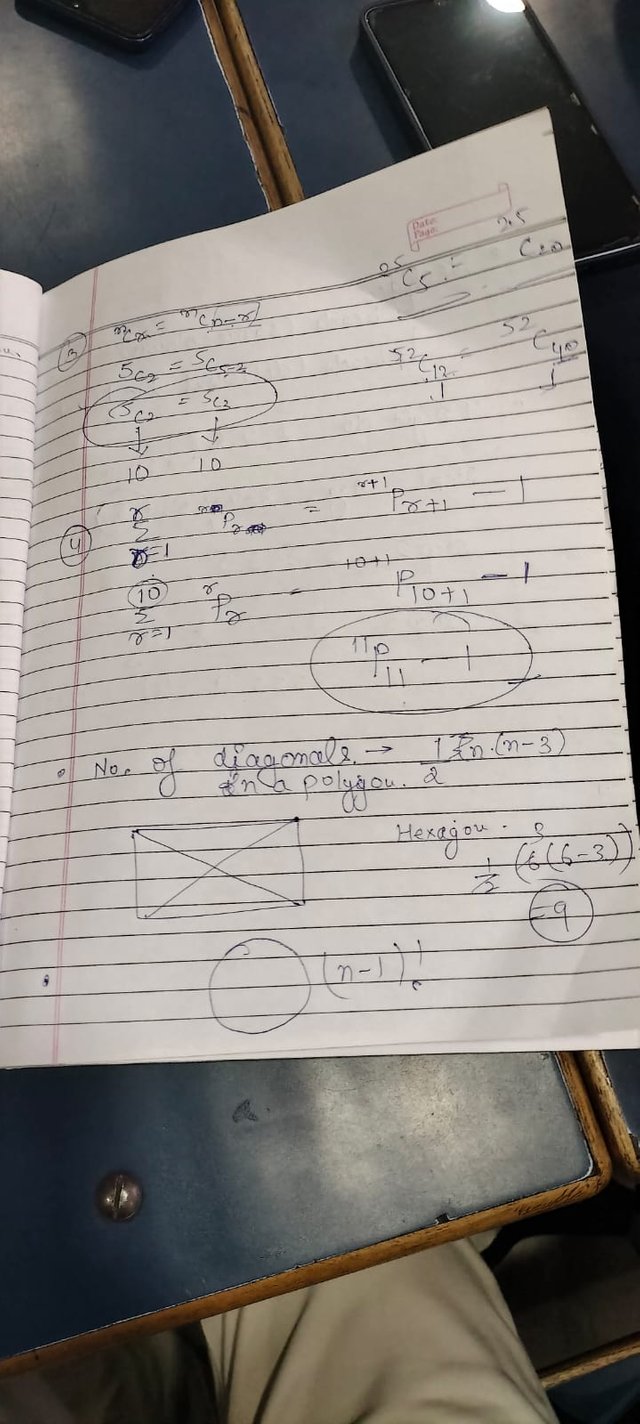 Date:
Page:
25C5 = 25C20
③ nCr = nCn-r
5C2 = 5C5-2
52C12 = 52C40
5C2 = 5C3
↓ ↓ ↓ ↓
10 10
④ r Σ r=1 rPr = r+1Pr+1 - 1
10 Σ r=1 rPr = 10+1P10+1 - 1
11P11 - 1
• No. of diagonals → 1/2 n.(n-3)
in a polygon.
Hexagon.
1/2 (6(6-3))
= 9
(n-1)!